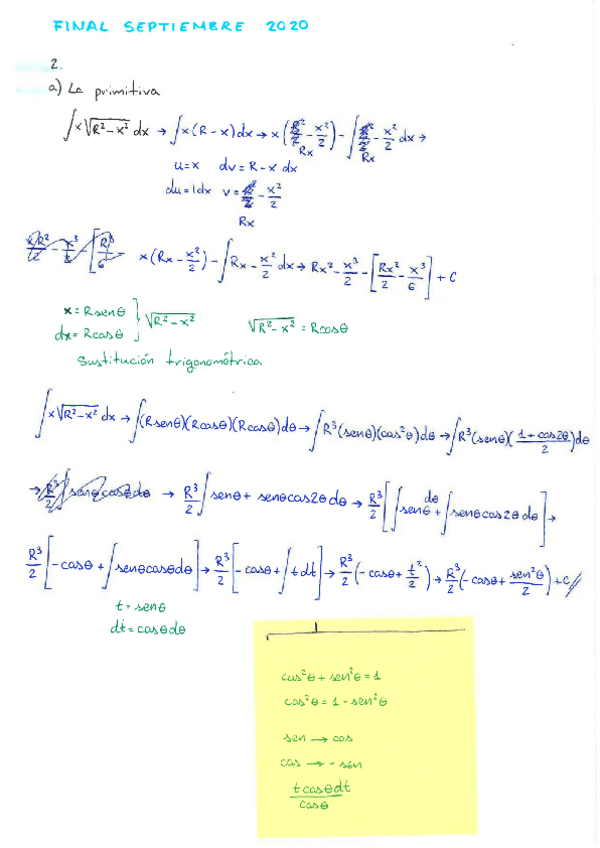 FINAL SEPTIEMBRE 2020
2.
a) La primitiva
∫x√(R²-x²) dx → ∫x(R-x)dx → x( - x²/2) - ∫ - x²/2 dx →
Rx Rx
u=x dv=R-x dx
du=1dx v= - x²/2
Rx
x(Rx - x²/2) - ∫Rx - x²/2 dx → Rx² - x³/2 - [Rx²/2 - x³/6] + C
x=Rsenθ } √(R²-x²) √(R²-x²) = Rcosθ
dx=Rcosθ
Sustitución trigonométrica
∫x√(R²-x²) dx → ∫(Rsenθ)(Rcosθ)(Rcosθ)dθ → ∫R³(senθ)(cos²θ)dθ → ∫R³(senθ)((1+cos2θ)/2)dθ
→ R³/2 ∫senθcosθdθ → R³/2 ∫senθ + senθcos2θdθ → R³/2 [∫senθ dθ + ∫senθcos2θ dθ] →
R³/2 [-cosθ + ∫senθcosθdθ] → R³/2 [-cosθ + ∫t dt] → R³/2 (-cosθ + t²/2) → R³/2 (-cosθ + sen²θ/2) + C //
t=senθ
dt=cosθdθ
cos²θ + sen²θ = 1
cos²θ = 1 - sen²θ
sen → cos
cos → -sen
tcosθdt/cosθ